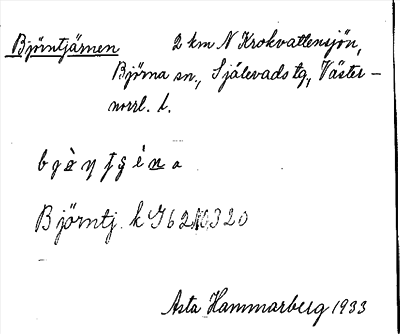 Björntjärnen 2 km N Krokvattensjön,
Björna sn., Själevads tg, Väster-
norrl. l.
Björntj. k
Asta Hammarberg 1933